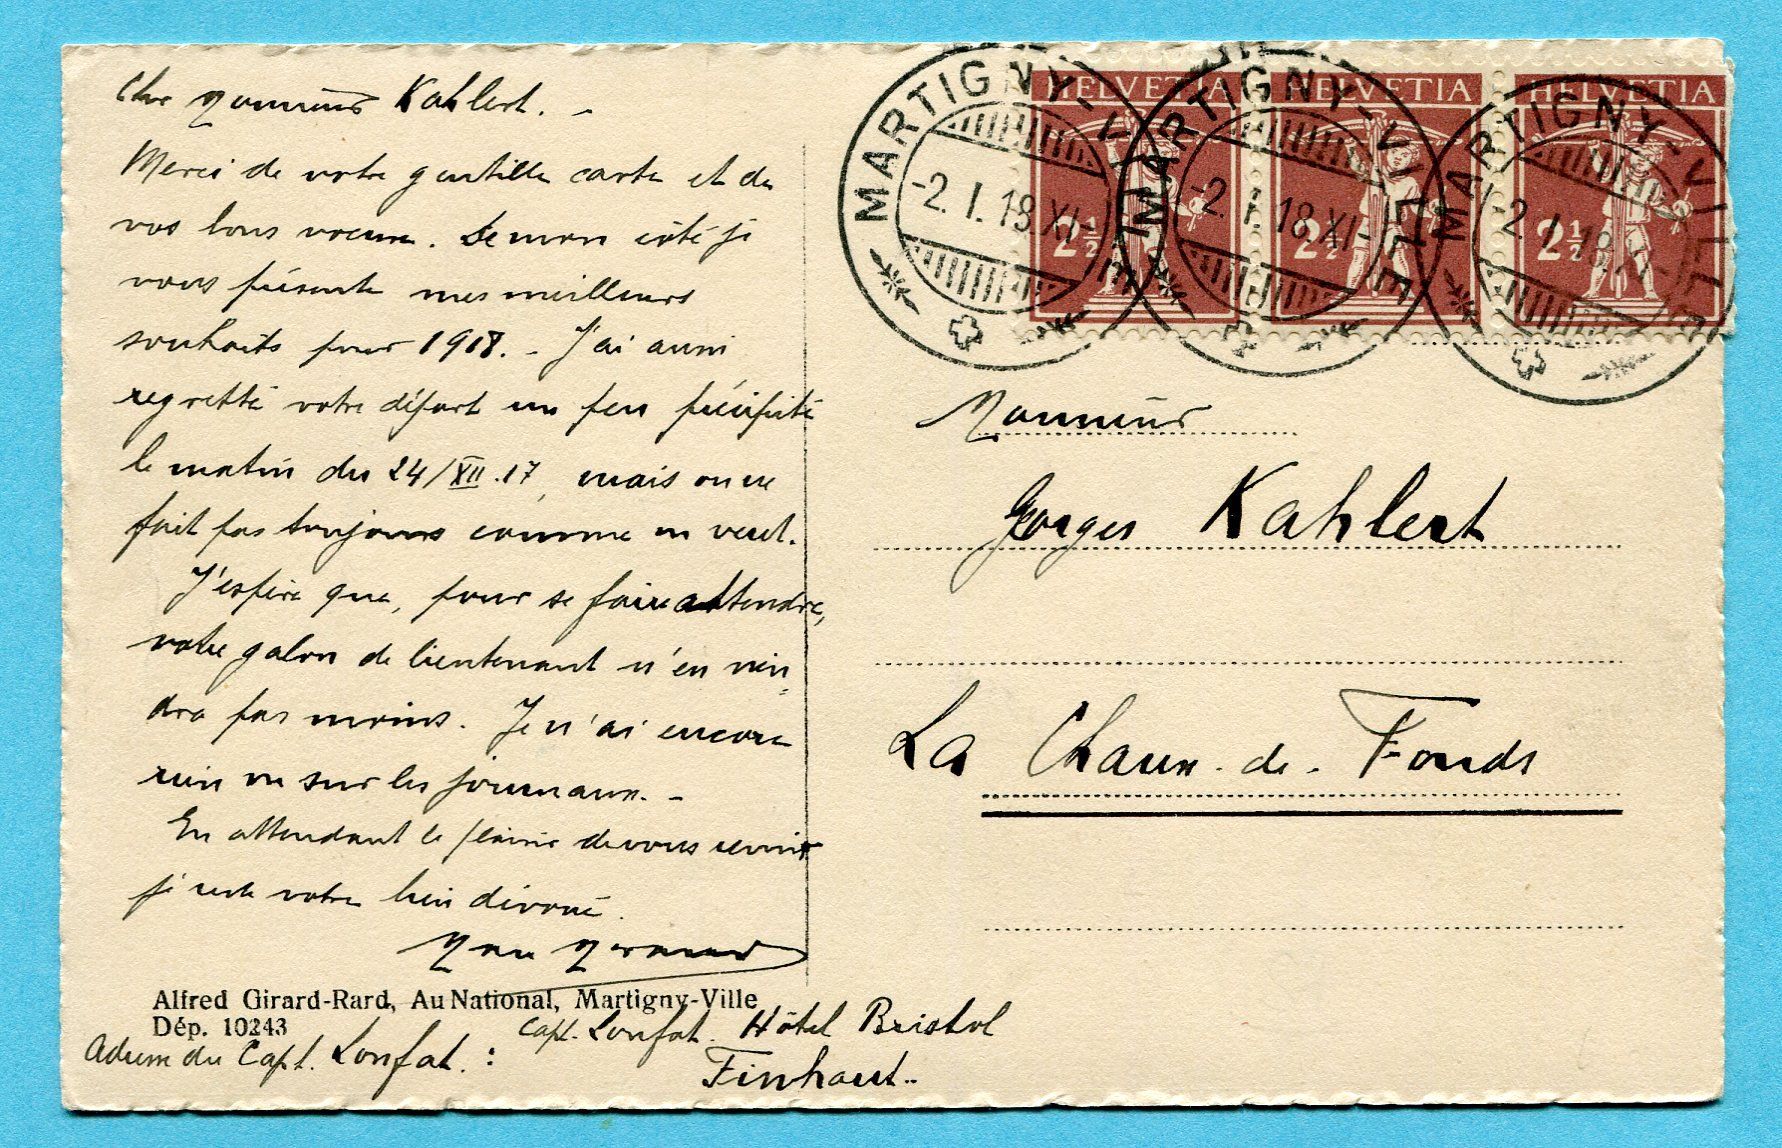 Cher Monsieur Kahlert. -
Merci de votre gentille carte et de
vos bons voeux. De mon côté je
vous présente mes meilleurs
souhaits pour 1918. - J'ai aussi
regretté votre départ un peu précipité
le matin du 24/XII.17, mais on ne
fait pas toujours comme on veut.
J'espère que, pour se faire attendre,
votre galon de lieutenant n'en vien
dra pas moins. Je n'ai encore
rien vu sur les journaux. -
En attendant le plaisir de vous revoir
je reste votre bien dévoué.
Alfred Girard-Rard, Au National, Martigny-Ville
Dép. 10243
Adresse du Capt. Lonfat. : Capt. Lonfat. Hôtel Bristol
Finhaut..
HELVETIA HELVETIA HELVETIA
2½ 2½ 2½
MARTIGNY-VILLE -2. I. 18 XI-
MARTIGNY-VILLE -2. I. 18 XI-
MARTIGNY-VILLE -2. I. 18 XI-
Monsieur
Georges Kahlert
La Chaux-de-Fonds